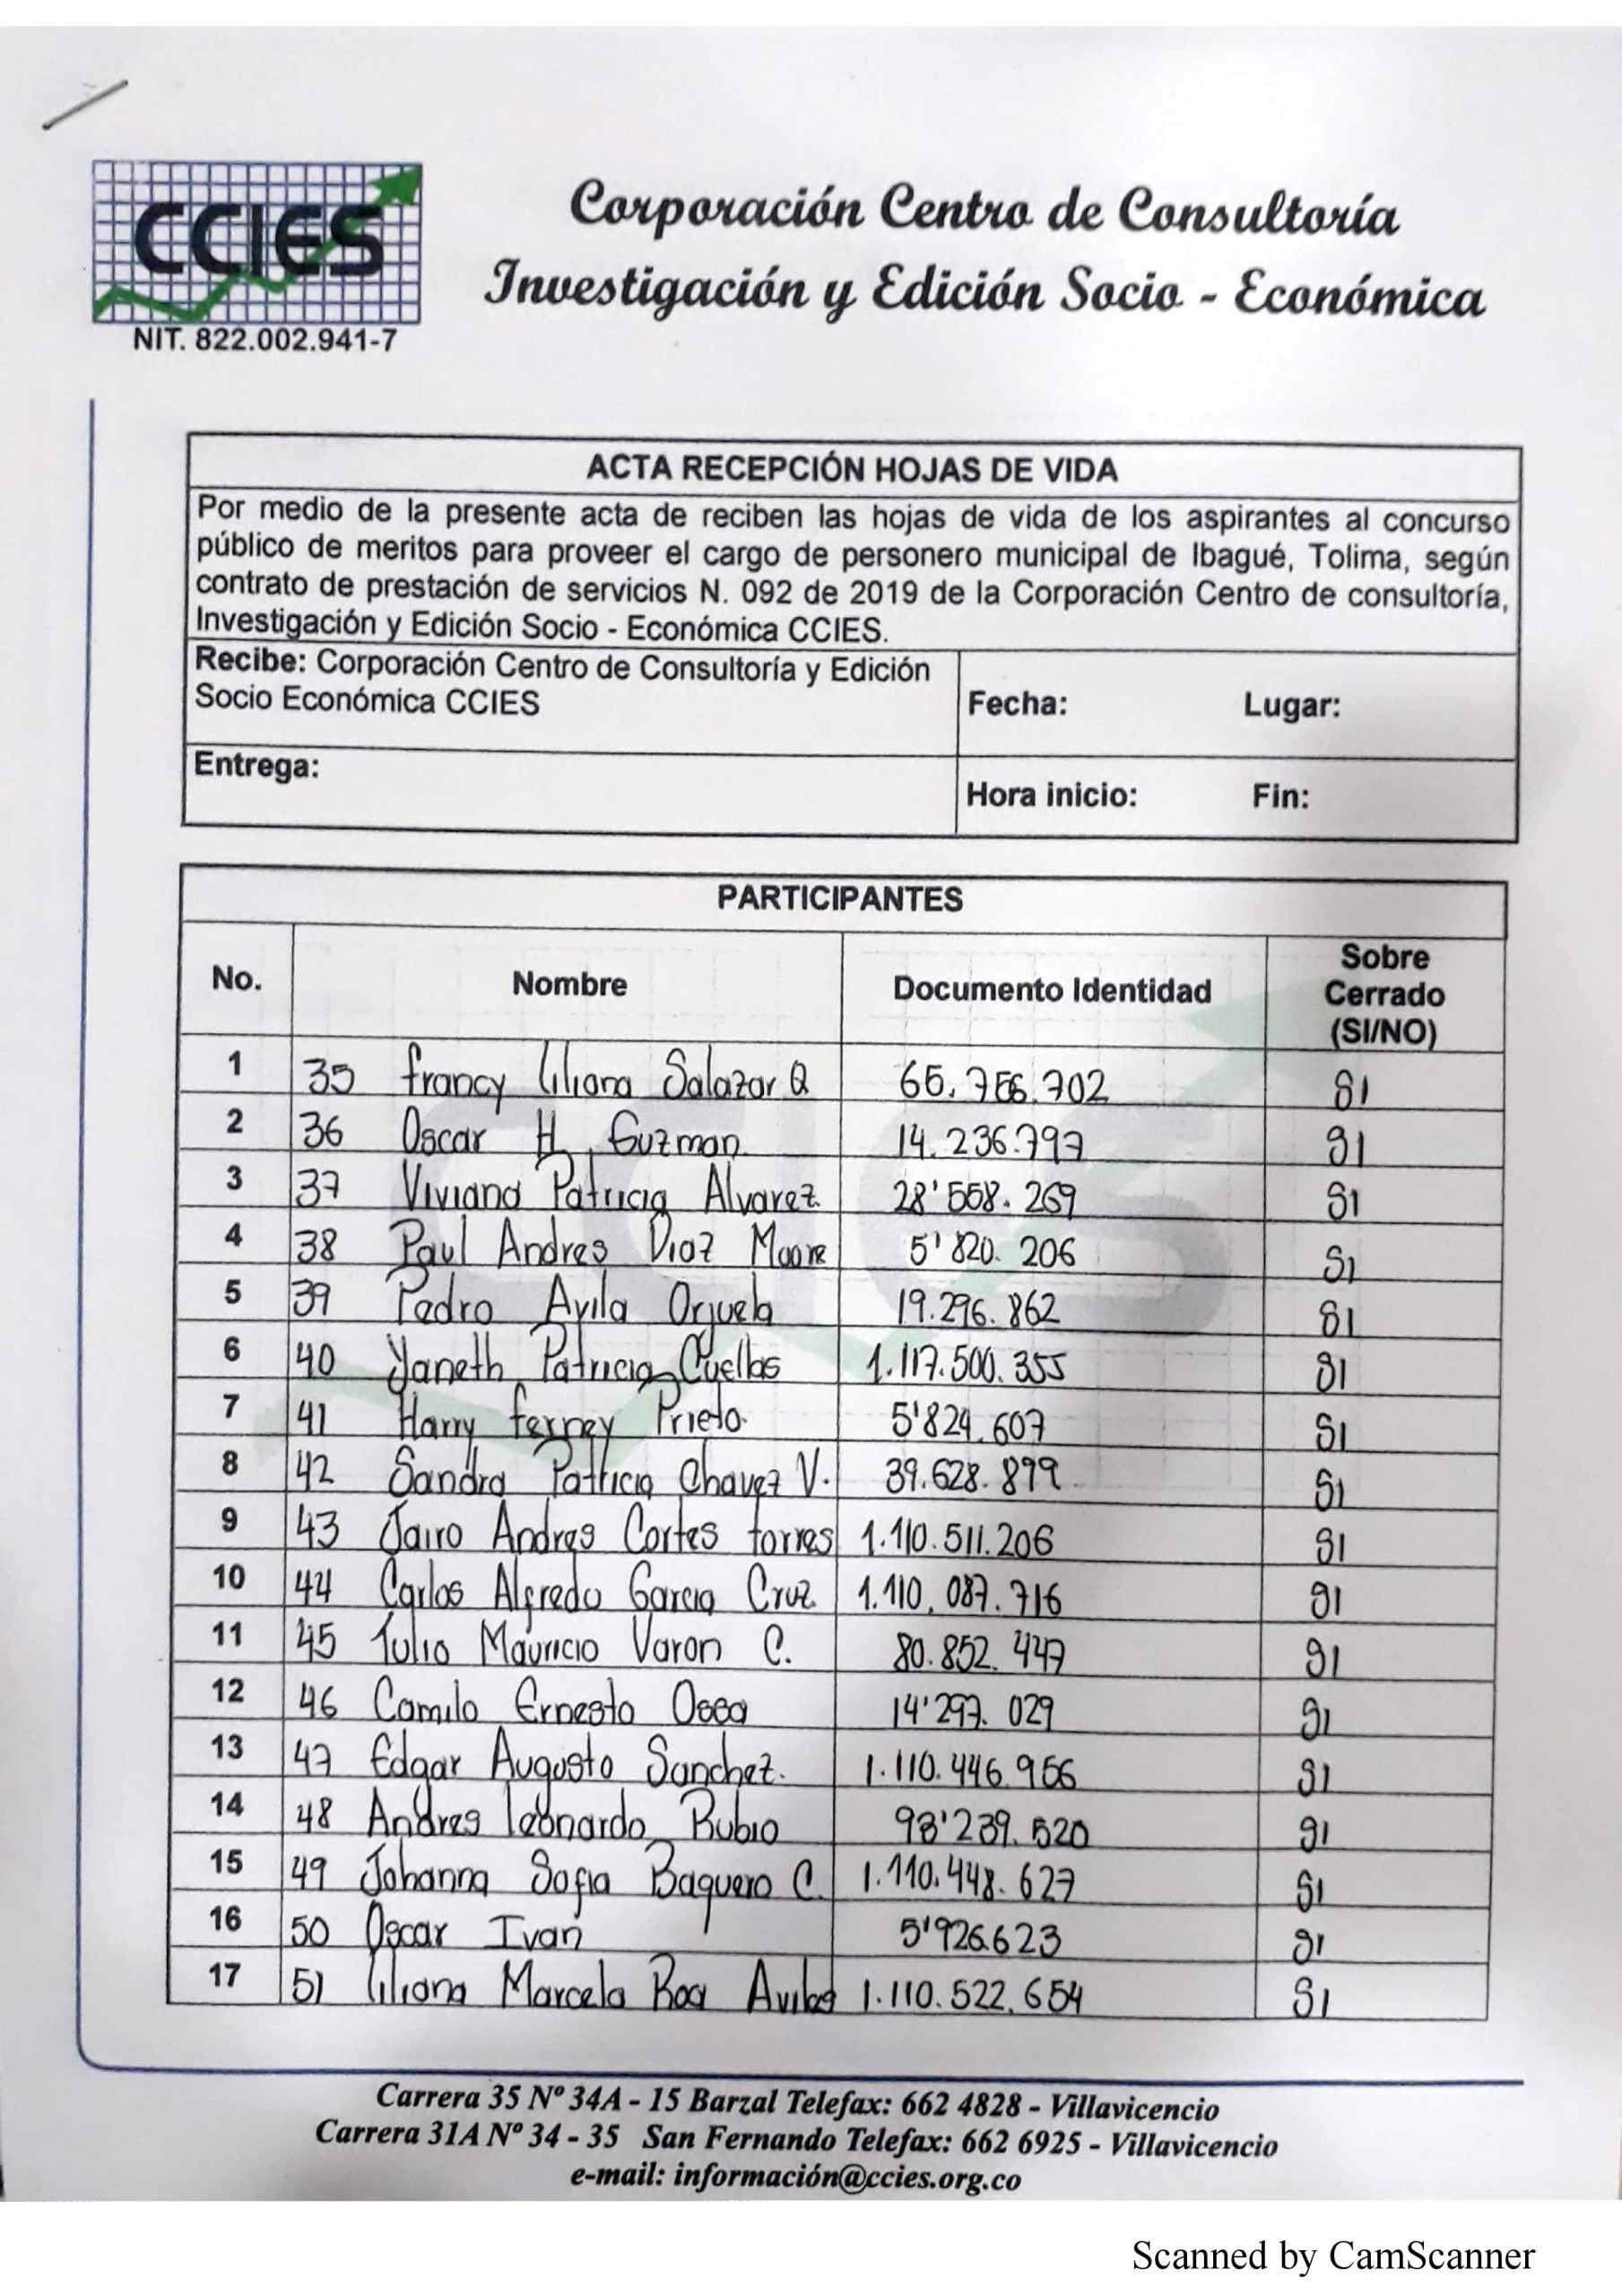 CCIES
NIT. 822.002.941-7
Corporación Centro de Consultoría
Investigación y Edición Socio - Económica
ACTA RECEPCIÓN HOJAS DE VIDA
Por medio de la presente acta de reciben las hojas de vida de los aspirantes al concurso
público de meritos para proveer el cargo de personero municipal de Ibagué, Tolima, según
contrato de prestación de servicios N. 092 de 2019 de la Corporación Centro de consultoría,
Investigación y Edición Socio - Económica CCIES.
Recibe: Corporación Centro de Consultoría y Edición
Socio Económica CCIES
Fecha: Lugar:
Entrega:
Hora inicio: Fin:
PARTICIPANTES
No. Nombre Documento Identidad Sobre Cerrado (SI/NO)
1 35 Francy Liliana Salazar Q 65.756.702 SI
2 36 Oscar H. Guzman 14.236.797 SI
3 37 Viviana Patricia Alvarez 28'558.269 SI
4 38 Paul Andres Diaz Moore 5'820.206 SI
5 39 Pedro Avila Orjuela 19.296.862 SI
6 40 Yaneth Patricia Cuellas 1.117.500.355 SI
7 41 Harry Ferney Prieto 5'824.607 SI
8 42 Sandra Patricia Chavez V. 39.628.899 SI
9 43 Jairo Andres Cortes torres 1.110.511.206 SI
10 44 Carlos Alfredo Garcia Cruz 1.110.087.716 SI
11 45 Tulio Mauricio Varon C. 80.852.447 SI
12 46 Camilo Ernesto Ossa 14'297.029 SI
13 47 Edgar Augusto Sanchez. 1.110.446.956 SI
14 48 Andres Leonardo Rubio 93'239.520 SI
15 49 Johanna Sofia Baquero C. 1.110.448.627 SI
16 50 Oscar Ivan 5'926.623 SI
17 51 Liliana Marcela Roa Aviles 1.110.522.654 SI
Carrera 35 Nº 34A - 15 Barzal Telefax: 662 4828 - Villavicencio
Carrera 31A Nº 34 - 35 San Fernando Telefax: 662 6925 - Villavicencio
e-mail: información@ccies.org.co
Scanned by CamScanner